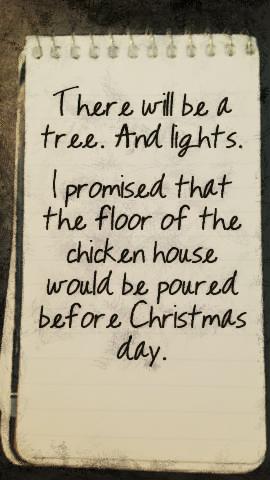 There will be a
tree. And lights.
I promised that
the floor of the
chicken house
would be poured
before Christmas
day.